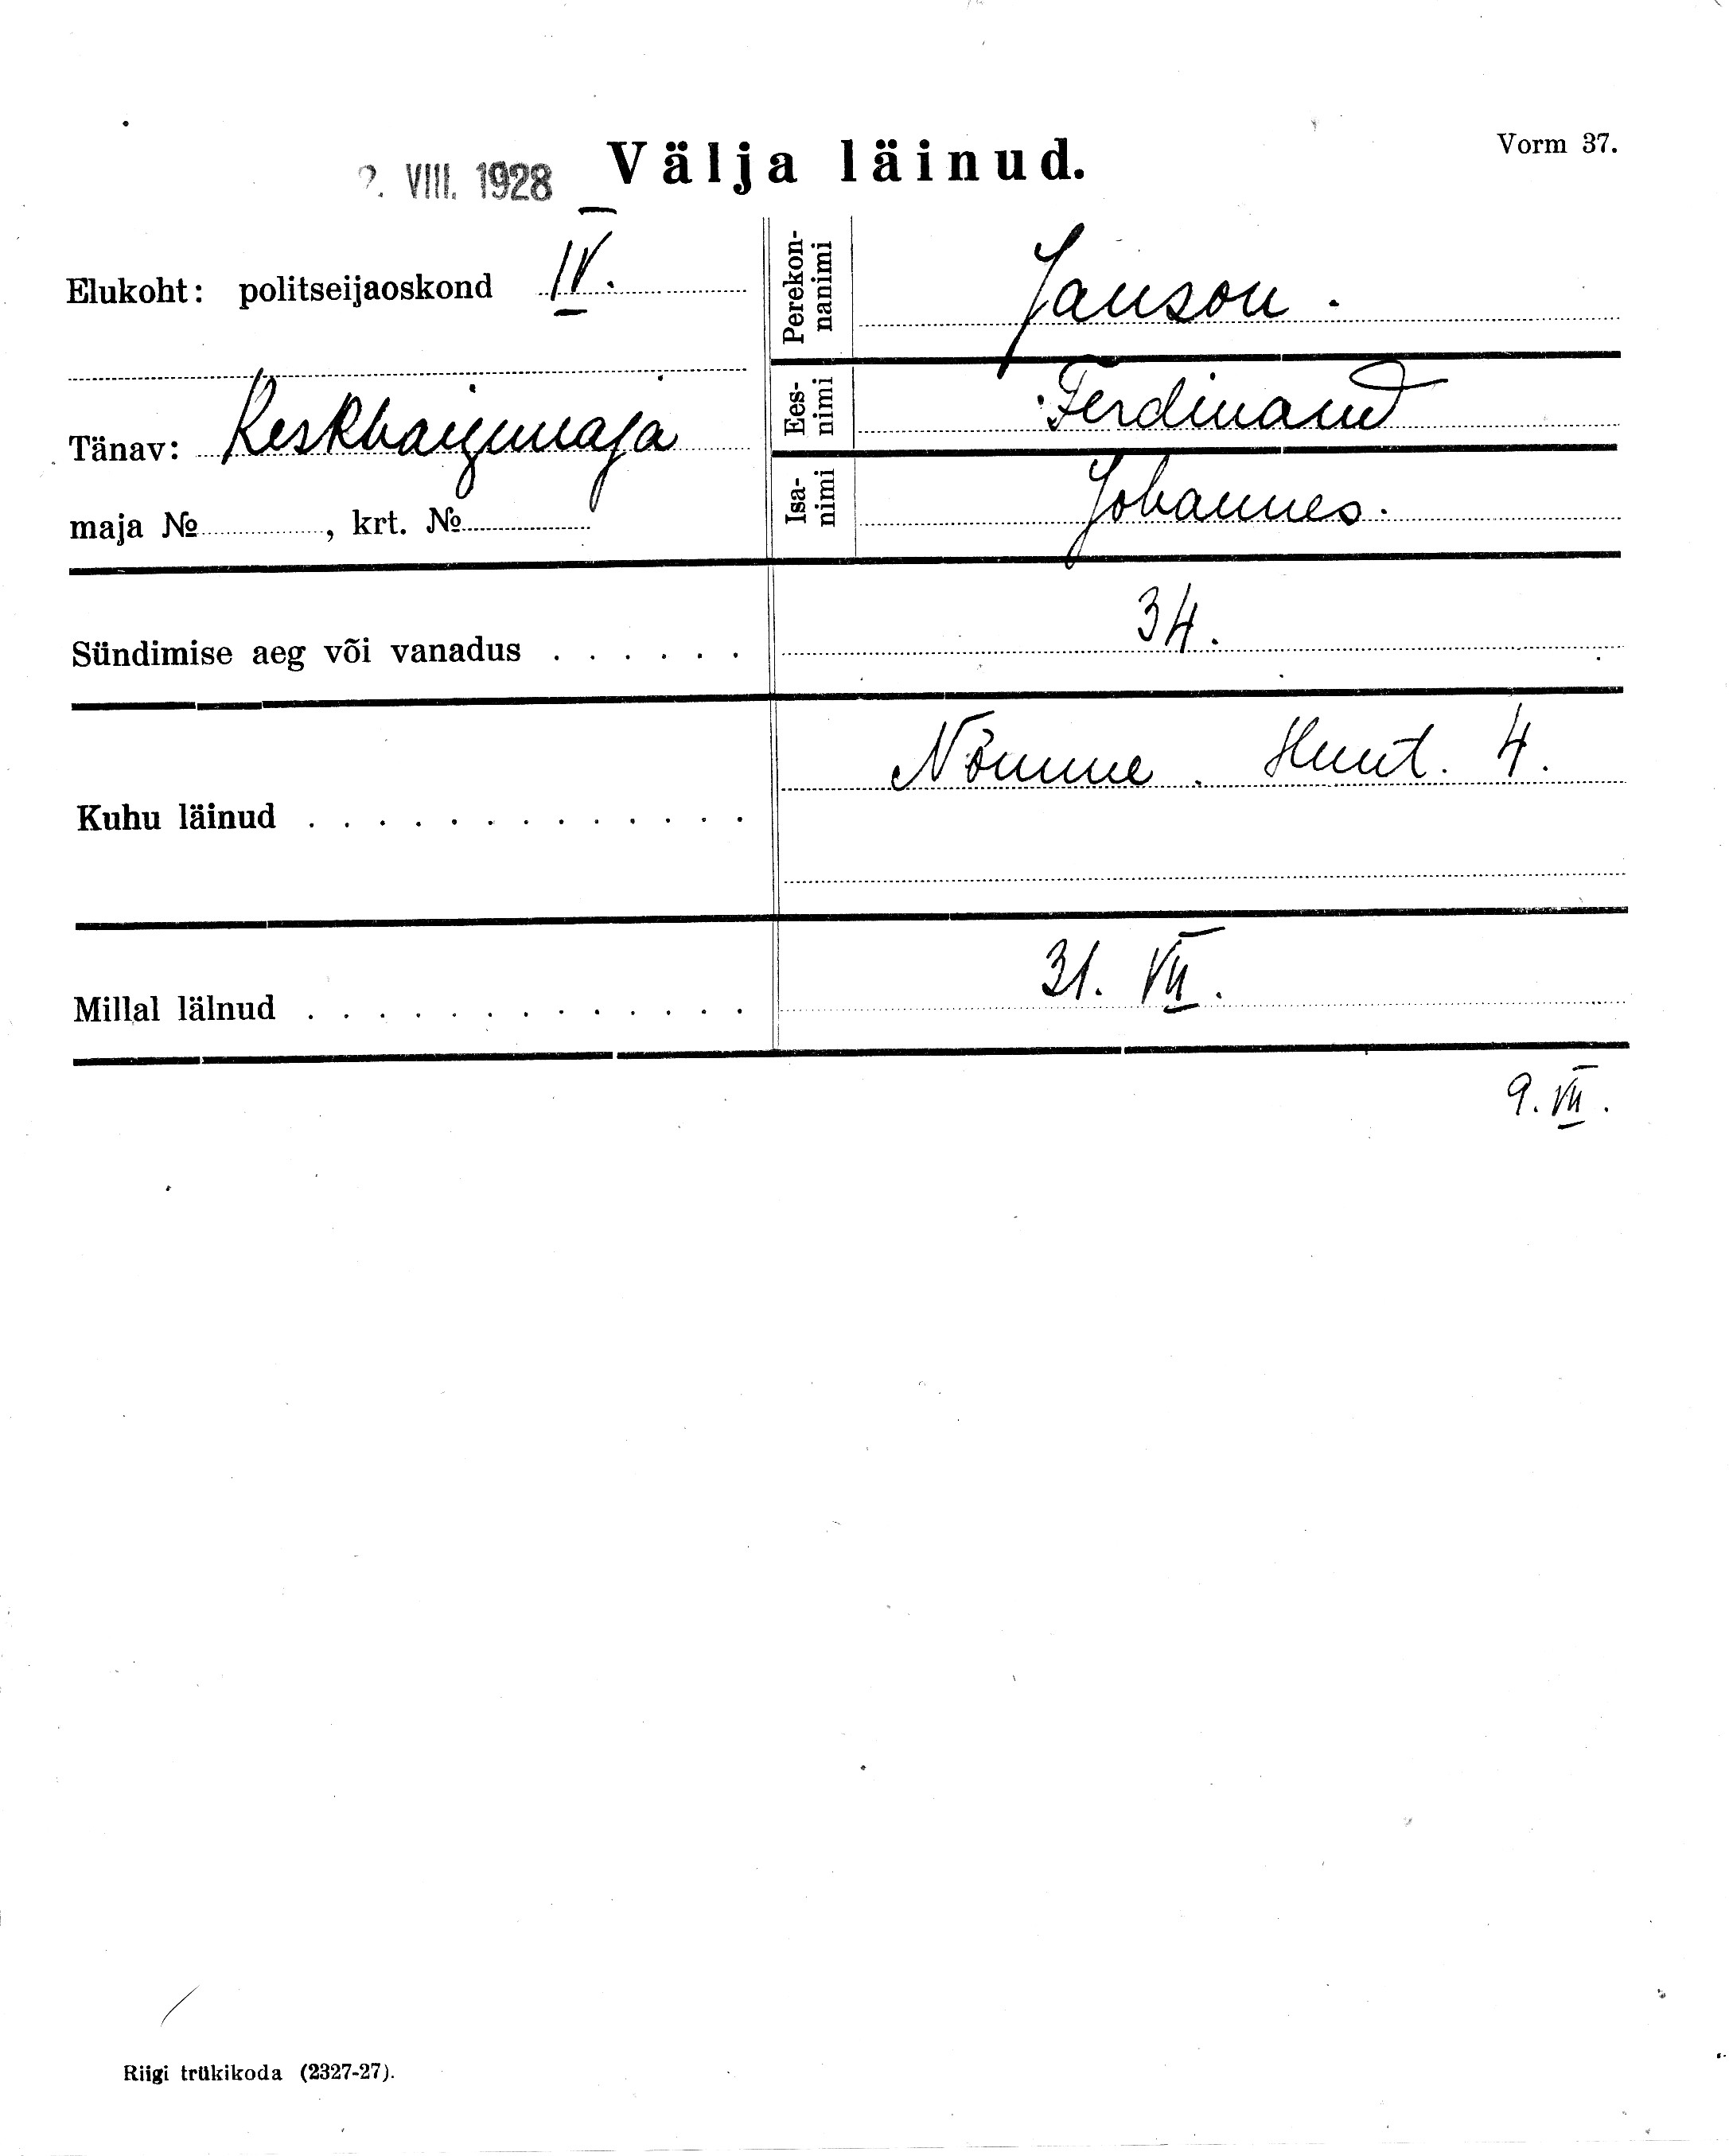 Vorm 37.
2. VIII. 1928 Välja läinud.
Elukoht: politseijaoskond IV.
Tänav: Keskhaigemaja
maja № , krt. №
Perekon-
nanimi
Janson.
Ees-
nimi
Ferdinand
Isa-
nimi
Johannes.
Sündimise aeg või vanadus . . . . . . 34.
Kuhu läinud . . . . . . . . . . . . . Nõmme. Hunt. 4.
Millal lälnud . . . . . . . . . . . . . 31. VII.
9. VII.
Riigi trükikoda (2327-27).